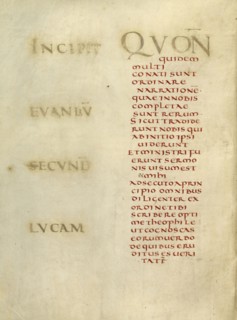 INCIPIT
SECUND̄
LUCAM
QUOÑ
QUIDEM
MULTI
CONATI SUNT
ORDINARE
NARRATIONE
QUAE IN NOBIS
COMPLETAE
SUNT RERUM·
SICUT TRADIDE
RUNT NOBIS QUI
AB INITIO IPSI
UIDERUNT
ET MINISTRI FU
ERUNT SERMO
NIS UISUM EST
MIHI
ADSECUTO A PRIN
CIPIO OMNIBUS
DILIGENTER EX
ORDINE TIBI
SCRIBERE OPTI
ME THEOPHILE
UT COGNOSCAS
EORUM UERBO
DE QUIBUS ERU
DITUS ES UERI
TATE